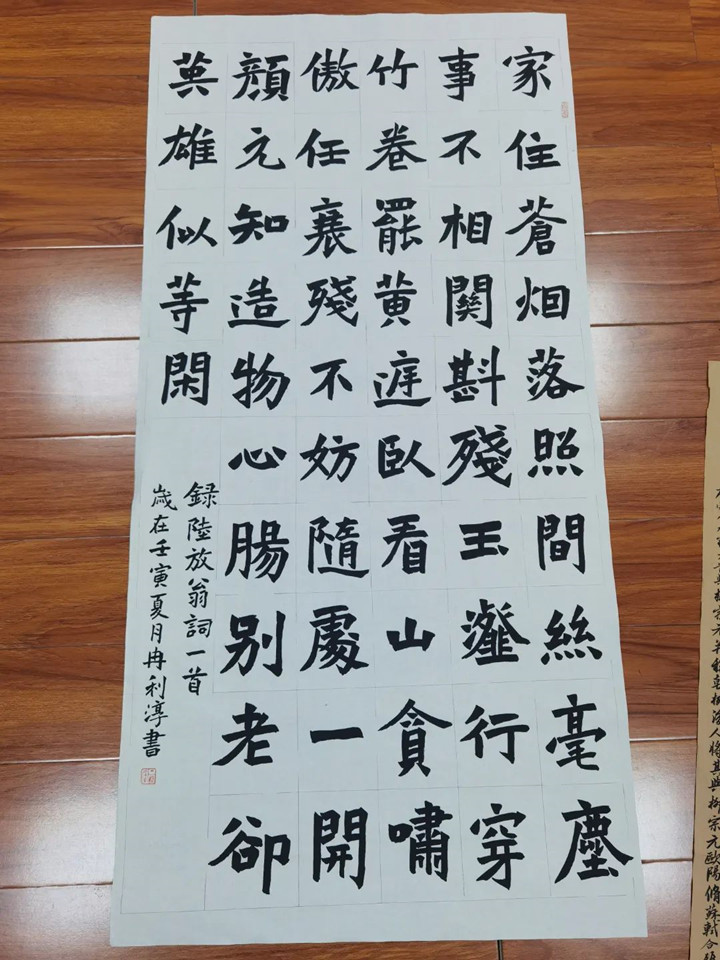 家住蒼烟落照間絲毫塵
事不相關斟殘玉瀣行穿
竹卷罷黃庭臥看山貪嘯
傲任衰殘不妨隨處一開
顏元知造物心腸別老卻
英雄似等閑
錄陸放翁詞一首
歲在壬寅夏月冉利淳書
人將其與柳宗元歐陽脩蘇軾合